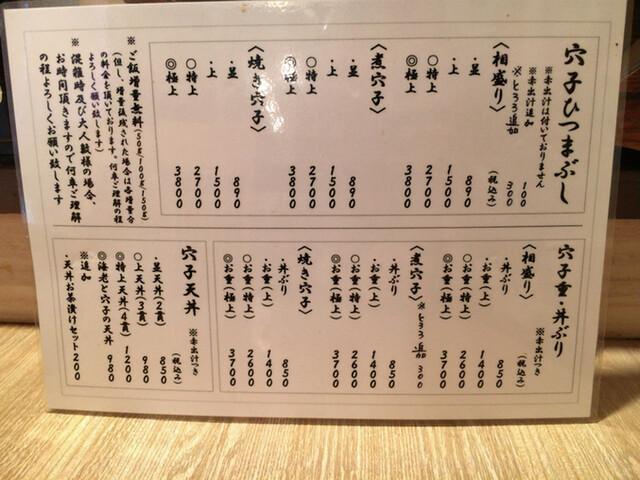 穴子ひつまぶし
※赤出汁は付いておりません
※赤出汁追加 100
※とろろ追加 300
(税込み)
〈相盛り〉
・並 890
・上 1500
○特上 2700
◎極上 3800
〈煮穴子〉
・並 890
・上 1500
○特上 2700
◎極上 3800
〈焼き穴子〉
・並 890
・上 1500
○特上 2700
◎極上 3800
※ご飯増量無料(50g・100g・150g)
(但し、増量後残された場合は各増量分
の料金を頂いております。何卒ご理解の程
よろしく願い致します)
※混雑時及び大人数様の場合、
お時間頂きますので何卒ご理解
の程よろしくお願い致します
穴子重・丼ぶり
※赤出汁つき
(税込み)
〈相盛り〉
・丼ぶり 850
・お重(上) 1400
○お重(特上) 2600
◎お重(極上) 3700
〈煮穴子〉※とろろ追加 300
・丼ぶり 850
・お重(上) 1400
○お重(特上) 2600
◎お重(極上) 3700
〈焼き穴子〉
・丼ぶり 850
・お重(上) 1400
○お重(特上) 2600
◎お重(極上) 3700
穴子天丼
※赤出汁つき
(税込み)
・並天丼(2貫) 850
○上天丼(3貫) 980
◎特上天丼(4貫) 1200
◎海老と穴子の天丼 980
※追加
・天丼お茶漬けセット 200